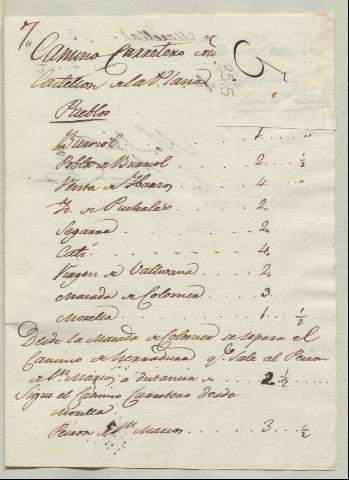 7"
Camino Carretero
Castellon de la Plana
5
3515
Pueblos
Burriol . . . 1. "
Pobla de Burriol . . . 2. ½
Venta de . . . 4. "
H. de Puchales . . . 2.
Segarra . . . 2.
Catí . . . 4.
Virgen de Vallivana . . . 2.
Masada de Colomer . . . 3.
Morella . . . 1. ½
Desde la Masada de Colomer se separa el
Camino de herradura qe. Sale al Peiron
de Sn. Marcos a distancia de . . . 2 ½
Sigue el Camino Carretero desde
Morella
Peiron de Sn. Marcos . . . 3. ½